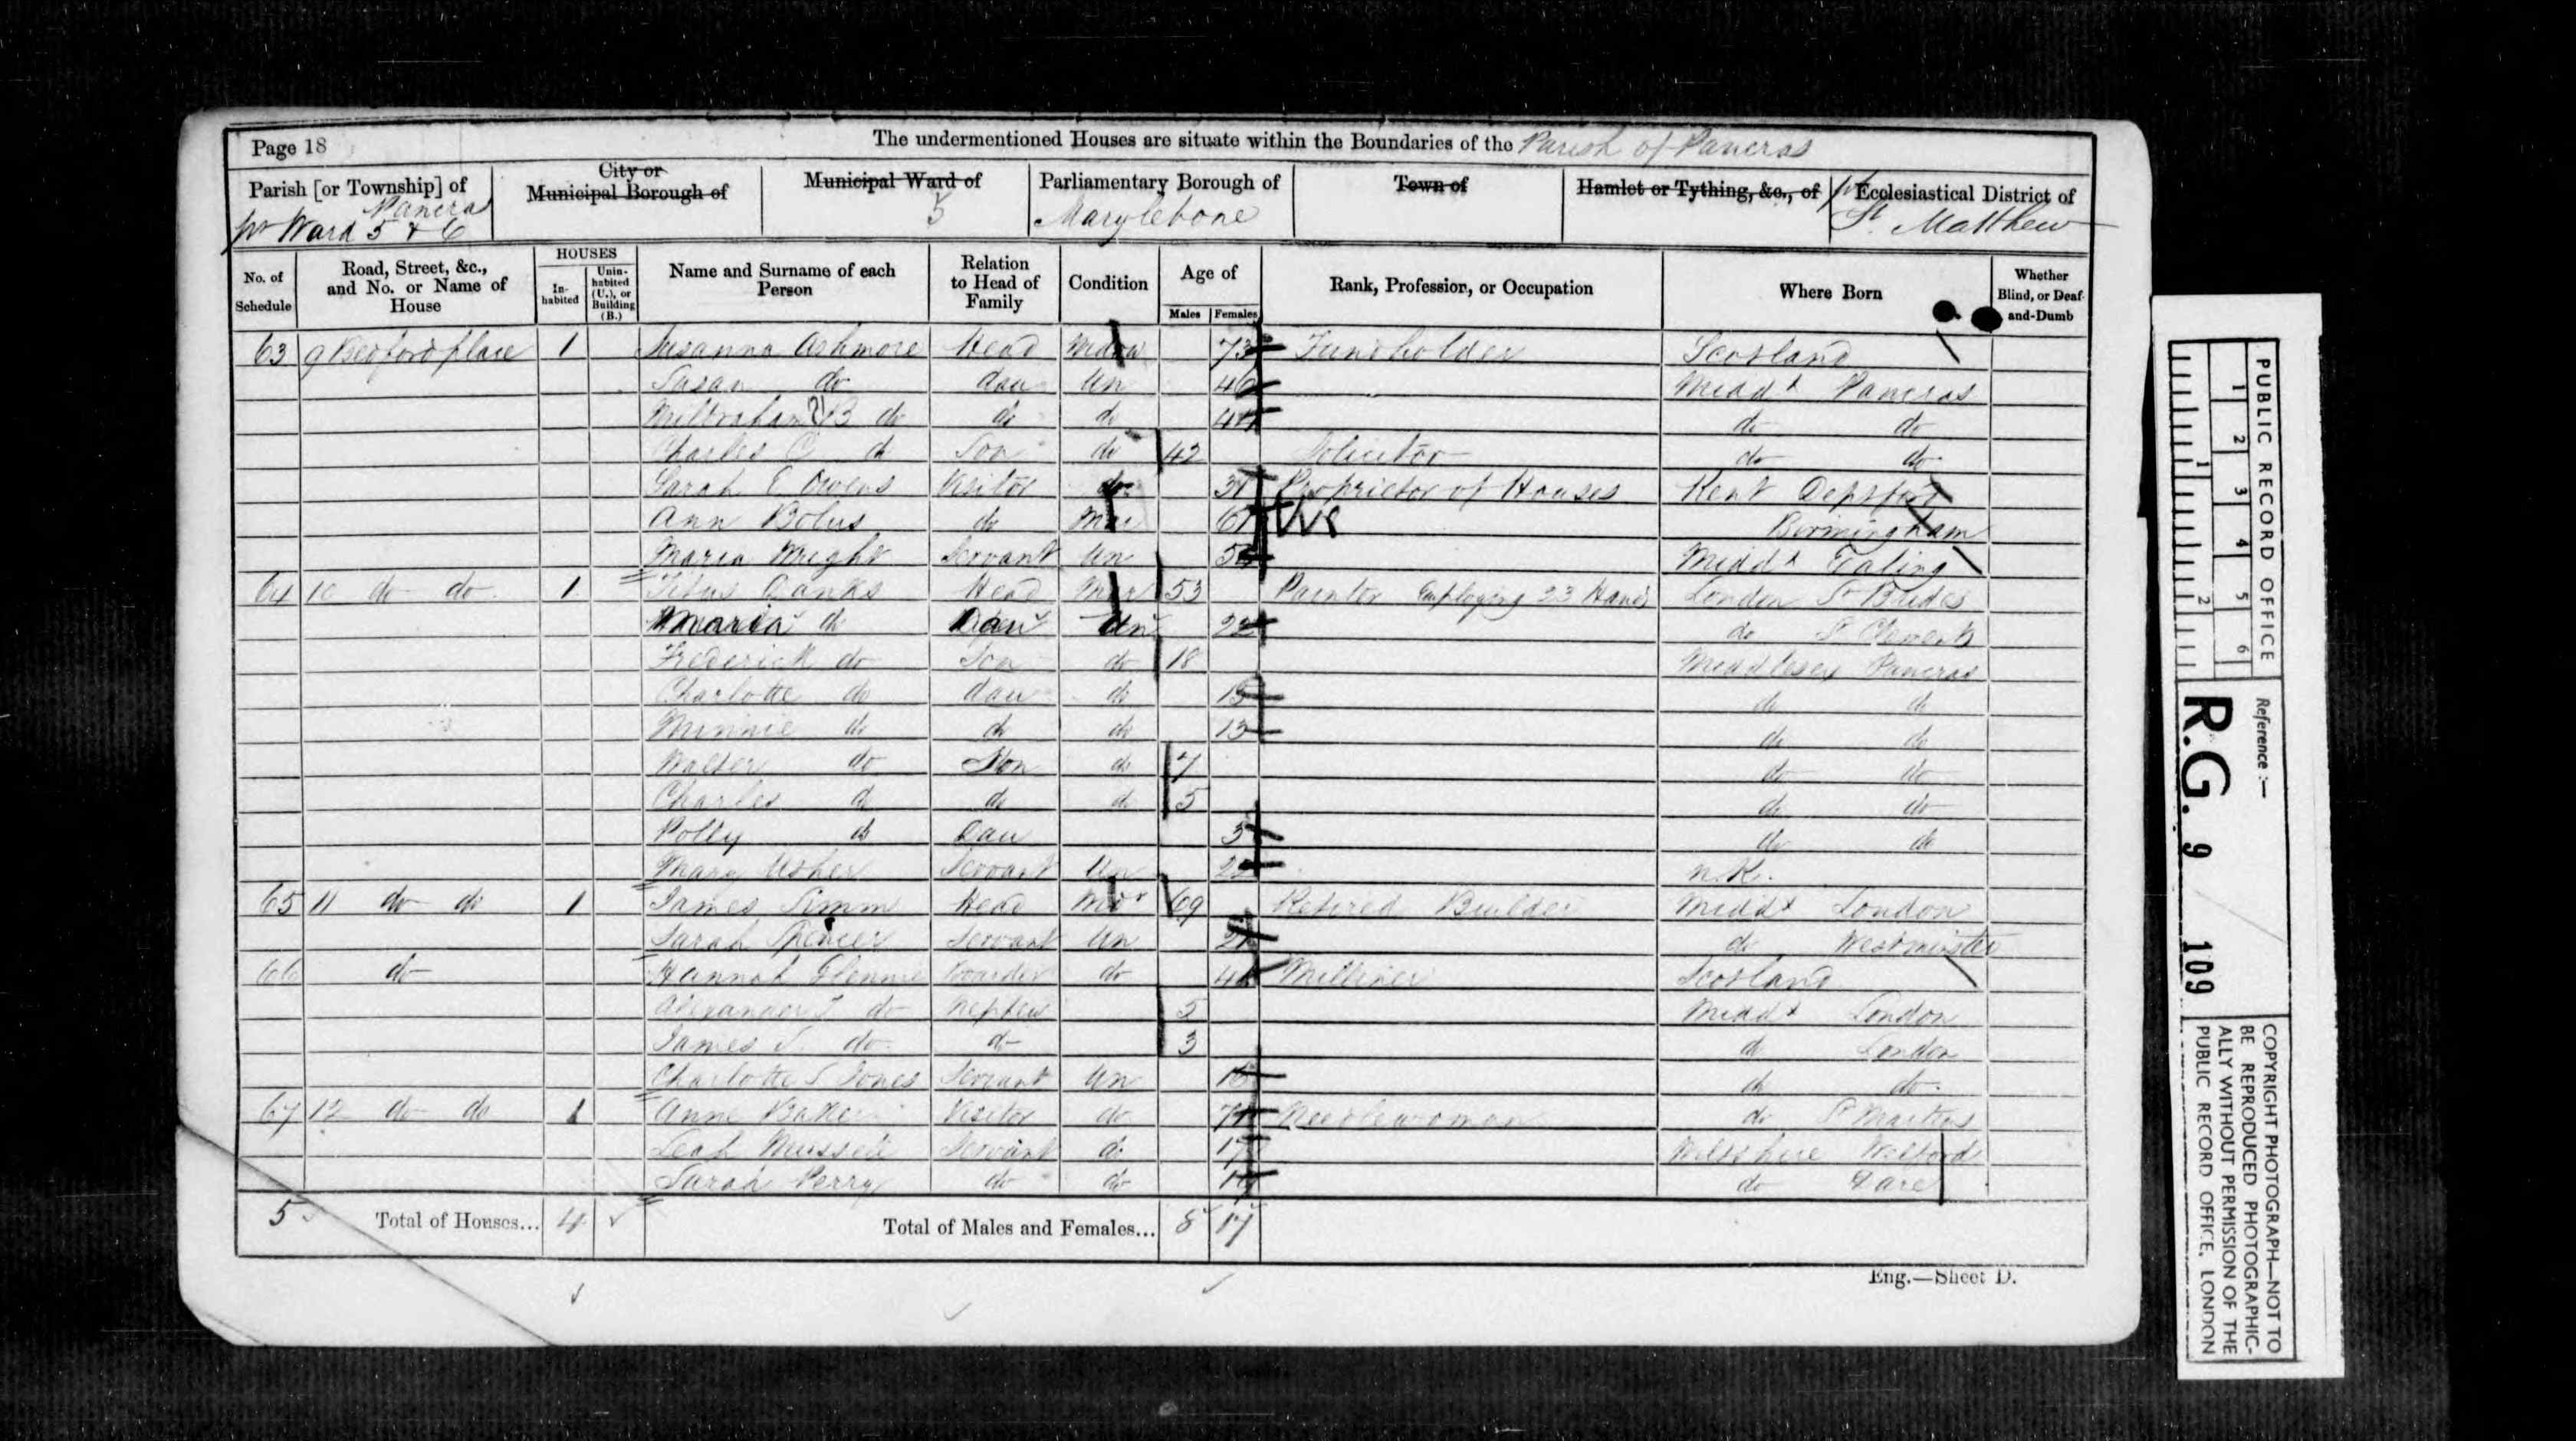 Page 18 The undermentioned Houses are situate within the Boundaries of the Parish of Pancras
Parish [or Township] of Pancras pt Ward 5 & 6
City or Municipal Borough of
Municipal Ward of 5
Parliamentary Borough of Marylebone
Town of
Hamlet or Tything, &c., of
pt Ecclesiastical District of St. Matthew
No. of Schedule
Road, Street, &c., and No. or Name of House
HOUSES
In-habited
Unin-habited (U.), or Building (B.)
Name and Surname of each Person
Relation to Head of Family
Condition
Age of
Males Females
Rank, Profession, or Occupation
Where Born
Whether Blind, or Deaf-and-Dumb
63 9 Bedford place 1 Susanna Ashmore Head Widow 73 Fundholder Scotland
Susan do dau Un 46 Middx Pancras
B do do do 44 do do
Charles C do Son do 42 Solicitor do do
Sarah E Owens Visitor do Proprietor of Houses Kent Deptford
Ann Bolus do Mar Birmingham
Maria Wright Servant Un Middx Ealing
64 10 do do 1 Titus Danks Head 53 Painter Employing 23 Hands London St Brides
Maria do Dau Un 22 do St Clements
Frederick do Son do 18 Middlesex Pancras
Charlotte do dau do 15 do do
Minnie do do do 13 do do
Walter do Son do 7 do do
Charles do do do 5 do do
Polly do Dau 3 do do
Mary Usher Servant Un n.K.
65 11 do do 1 James Simm Head Widr 69 Retired Builder Middx London
Sarah Spencer Servant Un do Westminster
66 do Hannah Glennie boarder do Milliner Scotland
Alexander do nephew 5 Middx London
James S. do do 3 do London
Charlotte S Jones Servant Un do do
67 12 do do 1 Anne Baker Visitor do Needlewoman do St Martins
Leah Servant do 17 Wiltshire
Sarah Perry do do do
5 Total of Houses... 4 Total of Males and Females... 8 17
Eng.—Sheet D.
PUBLIC RECORD OFFICE
1 2 3 4 5 6
1 2
Reference :—
R.G. 9 109
COPYRIGHT PHOTOGRAPH—NOT TO
BE REPRODUCED PHOTOGRAPHIC-
ALLY WITHOUT PERMISSION OF THE
PUBLIC RECORD OFFICE, LONDON